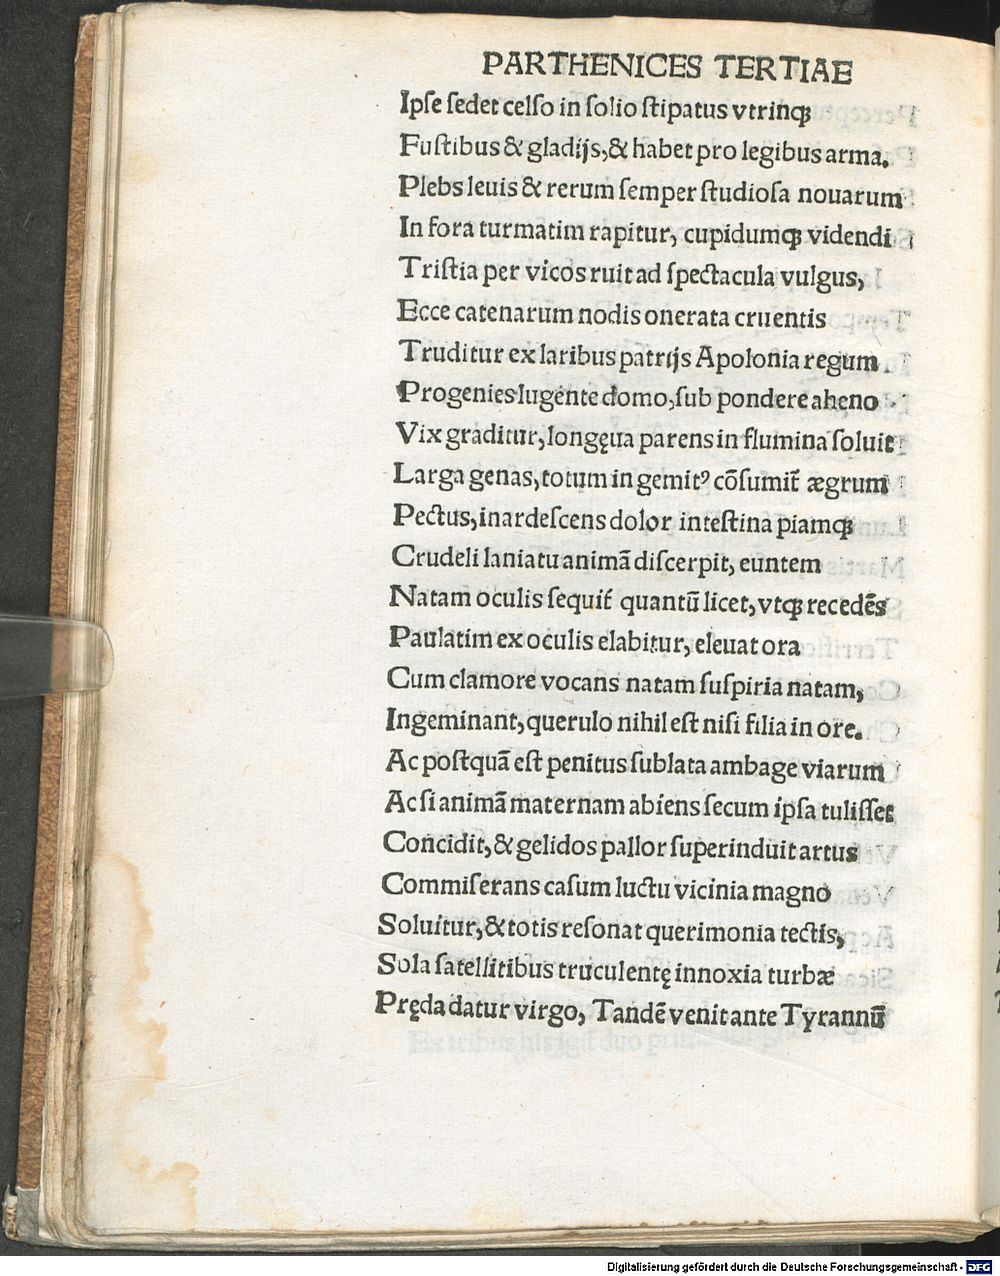 PARTHENICES TERTIAE
Ipſe ſedet celſo in ſolio ſtipatus vtrinqꝫ
Fuſtibus & gladijs,& habet pro legibus arma.
Plebs leuis & rerum ſemper ſtudioſa nouarum
In fora turmatim rapitur, cupidumqꝫ videndi
Triſtia per vicos ruit ad ſpectacula vulgus,
Ecce catenarum nodis onerata cruentis
Truditur ex laribus patrijs Apolonia regum
Progenies lugente domo,ſub pondere aheno
Vix graditur, longęua parens in flumina ſoluit
Larga genas,totum in gemitꝰ cōſumit̃ ægrum
Pectus,inardeſcens dolor inteſtina piamqꝫ
Crudeli laniatu animā diſcerpit, euntem
Natam oculis ſequit̃ quantū licet,vtqꝫ recedēs
Paulatim ex oculis elabitur, eleuat ora
Cum clamore vocans natam ſuſpiria natam,
Ingeminant,querulo nihil eſt niſi filia in ore.
Ac poſtquā eſt penitus ſublata ambage viarum
Ac ſi animā maternam abiens ſecum ipſa tuliſſet
Concidit,& gelidos pallor ſuperinduit artus
Commiſerans caſum luctu vicinia magno
Soluitur,& totis reſonat querimonia tectis,
Sola ſatellitibus truculentę innoxia turbæ
Pręda datur virgo, Tandē venit ante Tyrannū
Digitalisierung gefördert durch die Deutsche Forschungsgemeinschaft - DFG